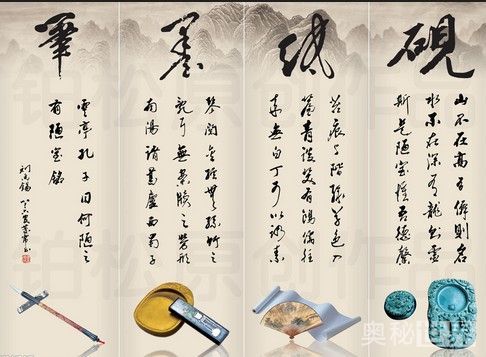 硯
山不在高有僊則名
水不在深有龍則靈
斯是陋室惟吾德馨
紙
苔痕上階綠草色入
簾青談笑有鴻儒往
來無白丁可以調素
墨
琴閱金經無絲竹之
亂耳無案牘之勞形
南陽諸葛廬西蜀子
筆
雲亭孔子曰何陋之
有陋室銘
劉禹錫
铂松原创作品
奥秘